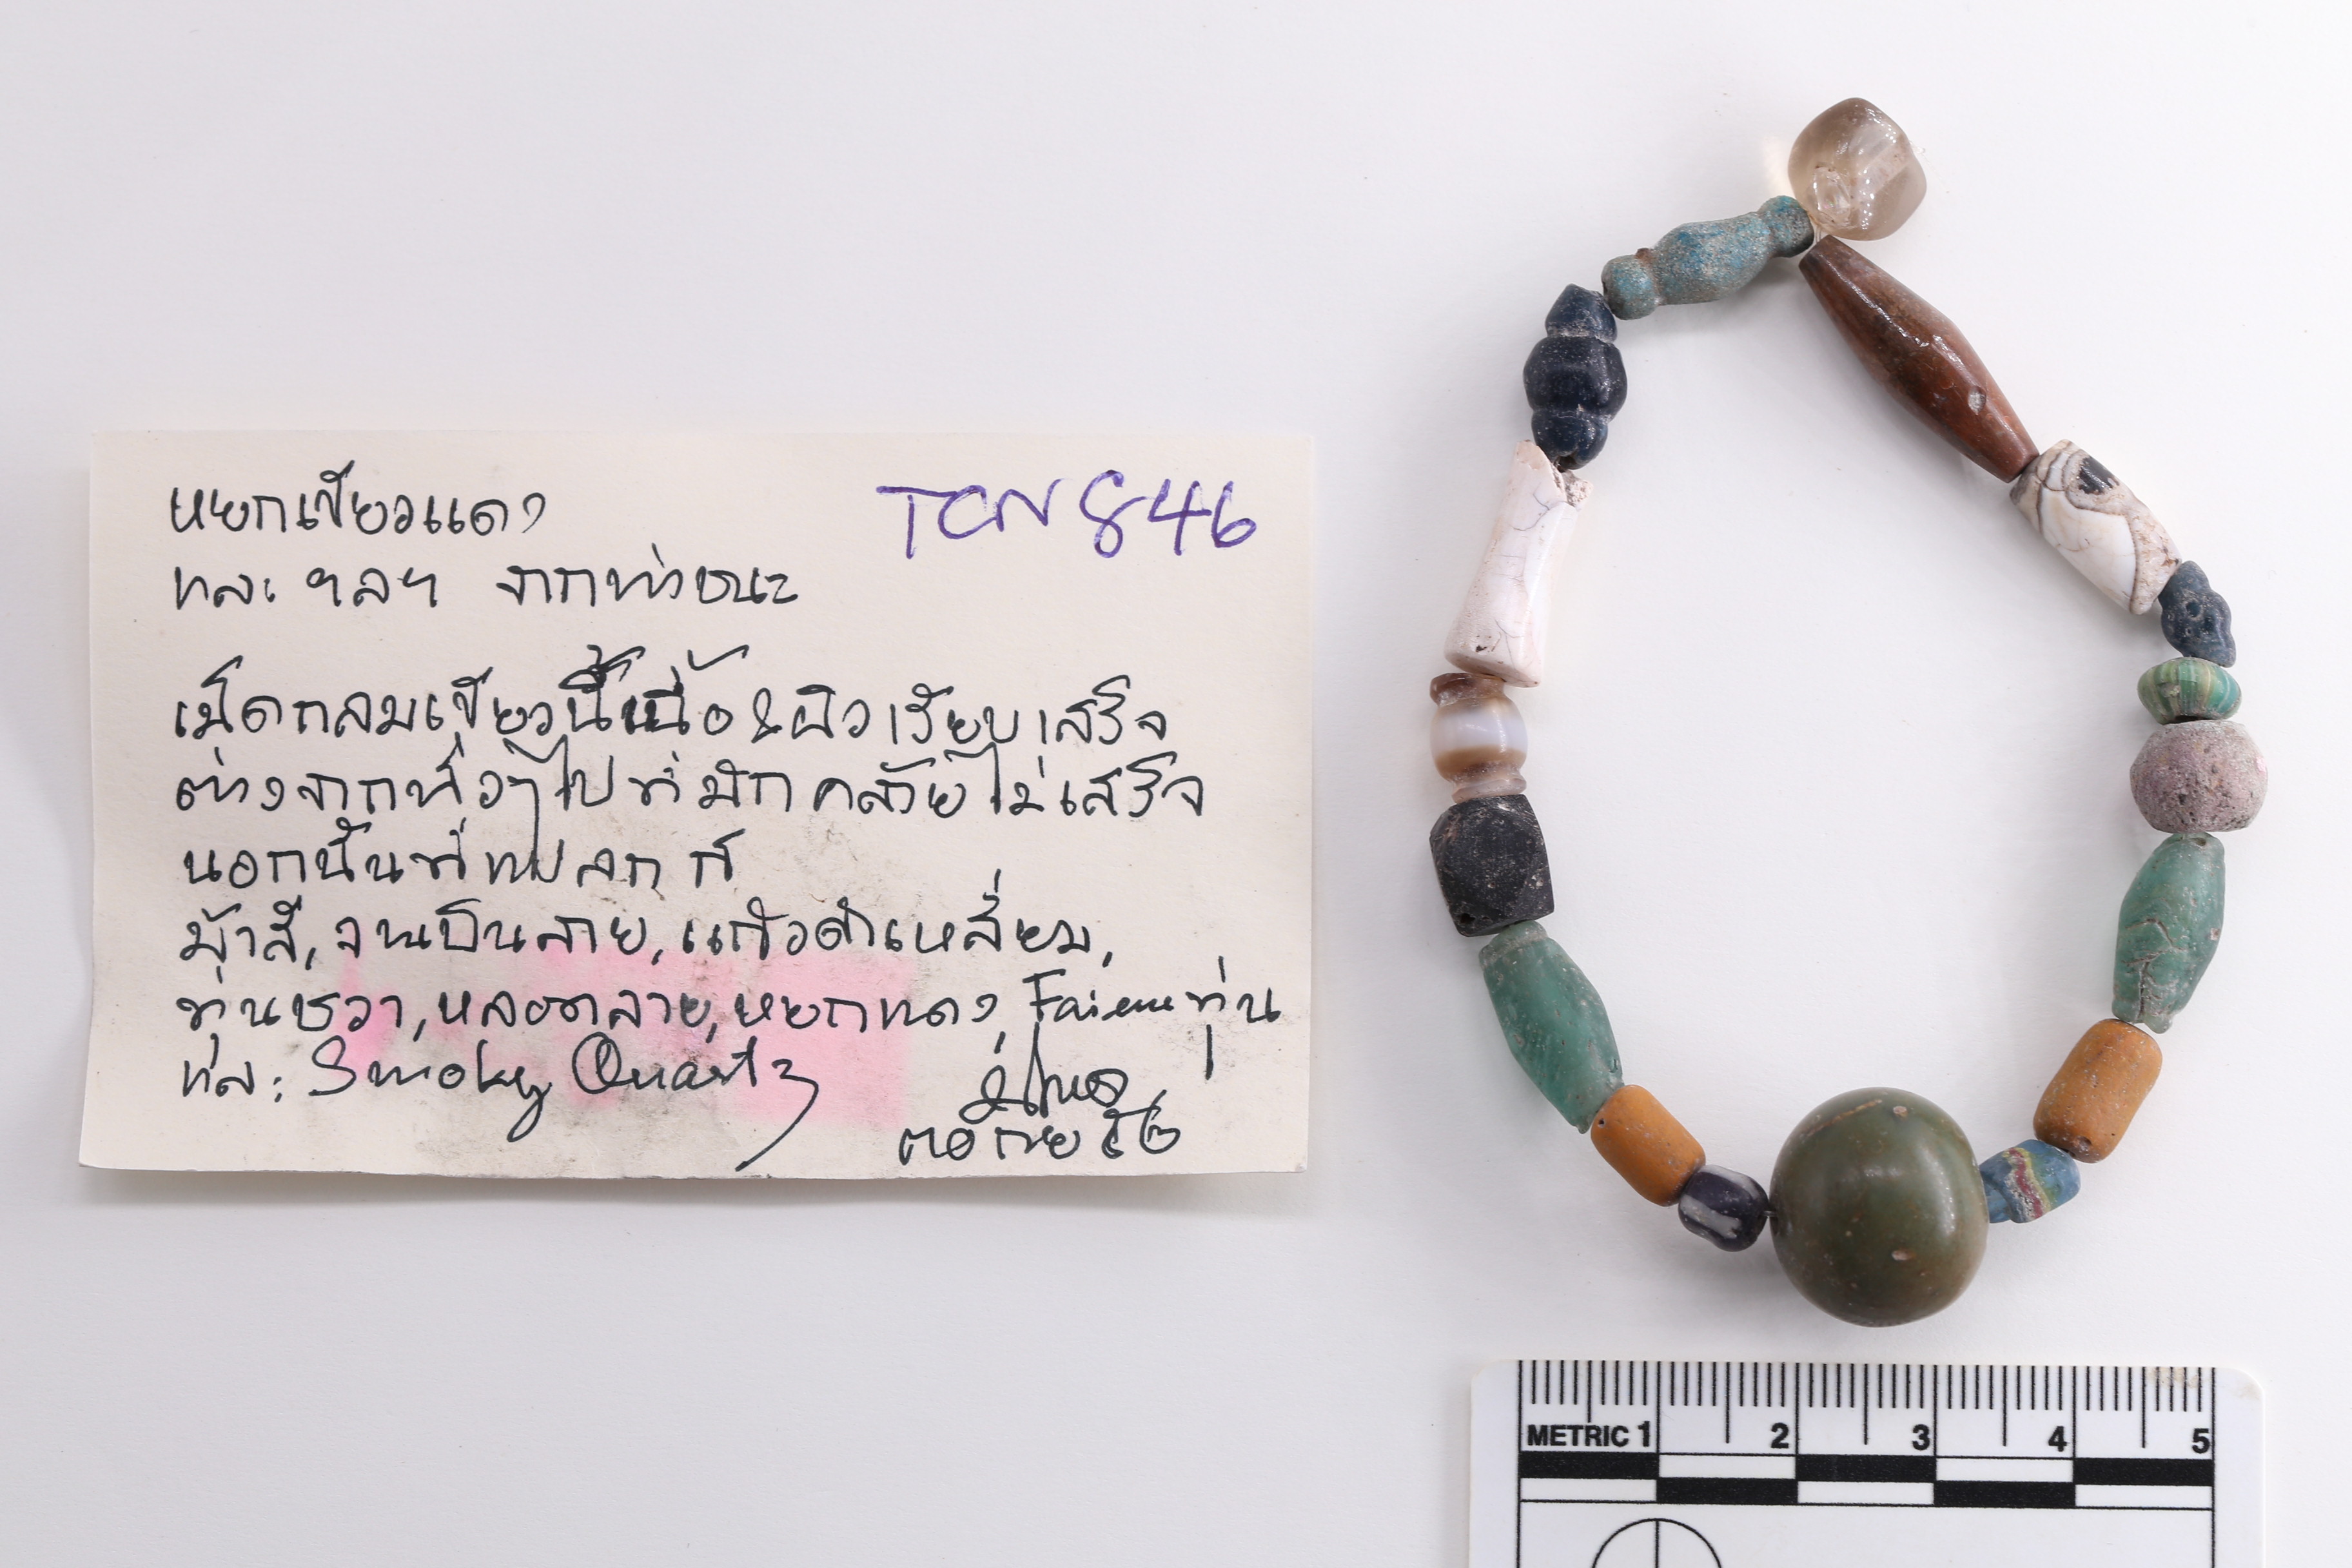 หยกเขียวแดง
TCN 846
และ ฯลฯ จากท่าชนะ
เม็ดกลมเขียวนี้เนื้อ & ผิวเรียบเสร็จ
ต่างจากทั่วๆไปที่มักคล้ายไม่เสร็จ
นอกนั้นที่แปลก ก็
ม้าสี, จนเป็นลาย, แก้วดำเหลี่ยม,
ชวา, หลอดลาย, หยกแดง, Faience
และ Smoky Quartz
METRIC 1 2 3 4 5